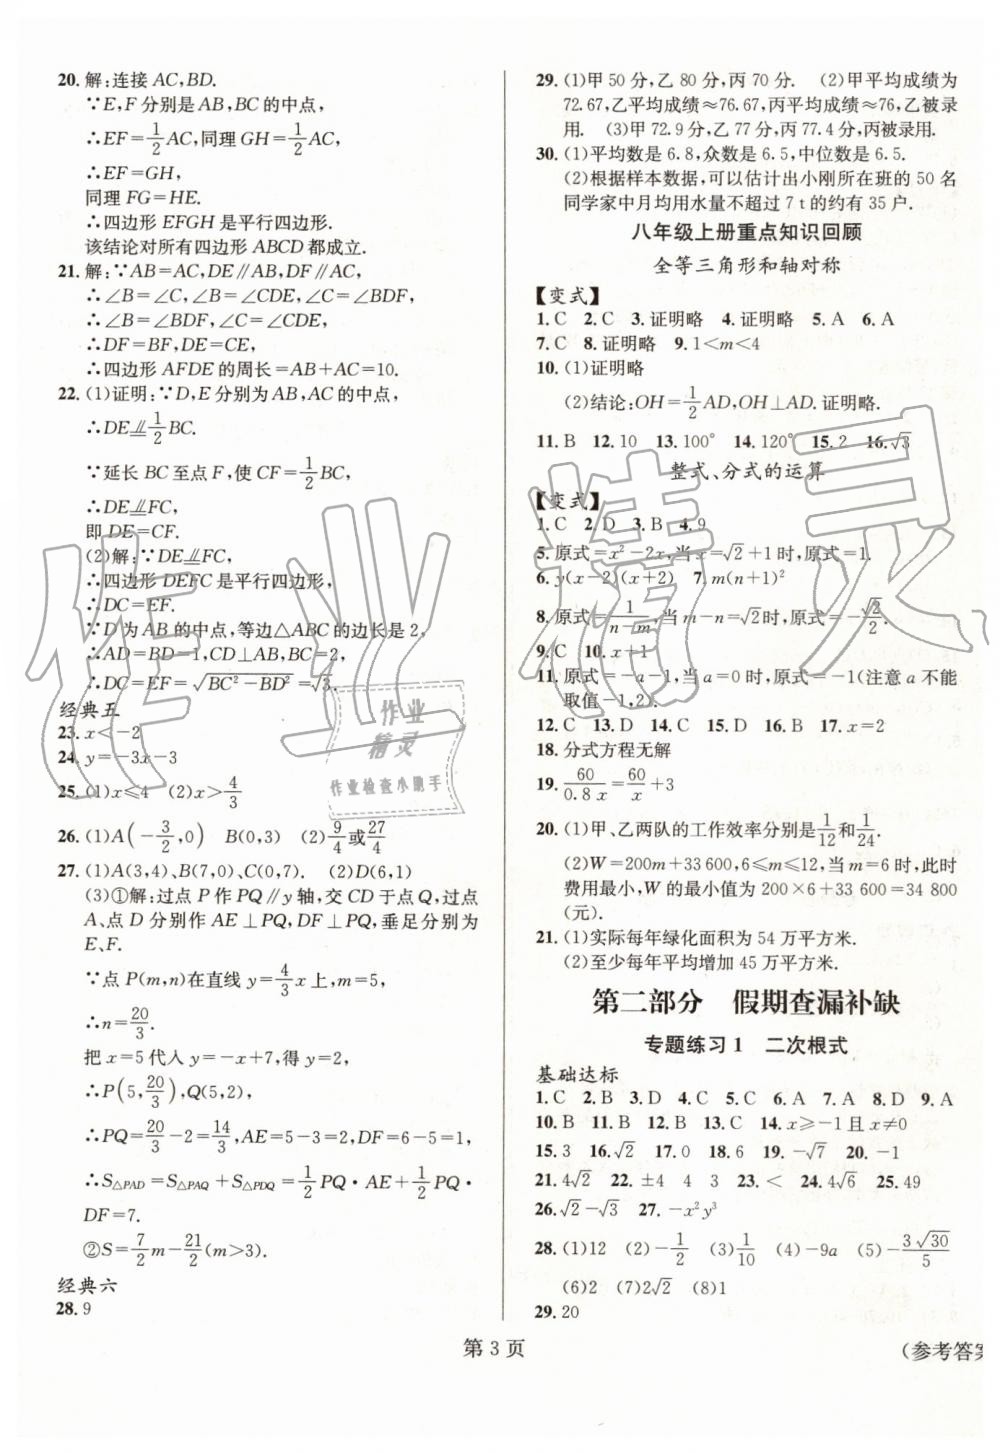 20. 解:连接 AC,BD.
∵E,F 分别是 AB,BC 的中点,
∴EF=1/2 AC,同理 GH=1/2 AC,
∴EF=GH,
同理 FG=HE.
∴四边形 EFGH 是平行四边形.
该结论对所有四边形 ABCD 都成立.
21. 解:∵AB=AC,DE∥AB,DF∥AC,
∴∠B=∠C,∠B=∠CDE,∠C=∠BDF,
∴∠B=∠BDF,∠C=∠CDE,
∴DF=BF,DE=CE,
∴四边形 AFDE 的周长=AB+AC=10.
22. (1)证明:∵D,E 分别为 AB,AC 的中点,
∴DE⫽1/2 BC.
∵延长 BC 至点 F,使 CF=1/2 BC,
∴DE⫽FC,
即 DE=CF.
(2)解:∵DE⫽FC,
∴四边形 DEFC 是平行四边形,
∴DC=EF.
∵D 为 AB 的中点,等边△ABC 的边长是 2,
∴AD=BD=1,CD⊥AB,BC=2,
∴DC=EF=√(BC²-BD²)=√3.
经典五
23. x<-2
24. y=-3x-3
25. (1)x≤4 (2)x>4/3
26. (1)A(-3/2,0) B(0,3) (2)9/4或27/4
27. (1)A(3,4),B(7,0),C(0,7). (2)D(6,1)
(3)①解:过点 P 作 PQ∥y 轴,交 CD 于点 Q,过点
A、点 D 分别作 AE⊥PQ,DF⊥PQ,垂足分别为
E、F.
∵点 P(m,n)在直线 y=4/3 x 上,m=5,
∴n=20/3.
把 x=5 代入 y=-x+7,得 y=2,
∴P(5,20/3),Q(5,2),
∴PQ=20/3-2=14/3,AE=5-3=2,DF=6-5=1,
∴S△PAD=S△PAQ+S△PDQ=1/2 PQ·AE+1/2 PQ·
DF=7.
②S=7/2 m-21/2(m>3).
经典六
28. 9
29. (1)甲 50 分,乙 80 分,丙 70 分. (2)甲平均成绩为
72.67,乙平均成绩≈76.67,丙平均成绩≈76,乙被录
用. (3)甲 72.9 分,乙 77 分,丙 77.4 分,丙被录用.
30. (1)平均数是 6.8,众数是 6.5,中位数是 6.5.
(2)根据样本数据,可以估计出小刚所在班的 50 名
同学家中月均用水量不超过 7 t 的约有 35 户.
八年级上册重点知识回顾
全等三角形和轴对称
【变式】
1. C 2. C 3. 证明略 4. 证明略 5. A 6. A
7. C 8. 证明略 9. 1<m<4
10. (1)证明略
(2)结论:OH=1/2 AD,OH⊥AD. 证明略.
11. B 12. 10 13. 100° 14. 120° 15. 2 16. √3
整式、分式的运算
【变式】
1. C 2. D 3. B 4. 9
5. 原式=x²-2x,当 x=√2+1 时,原式=1.
6. y(x-2)(x+2) 7. m(n+1)²
8. 原式=1/(n-m),当 m-n=√2时,原式=-√2/2.
9. C 10. x+1
11. 原式=-a-1,当 a=0 时,原式=-1(注意 a 不能
取值-1,2).
12. C 13. D 14. C 15. D 16. B 17. x=2
18. 分式方程无解
19. 60/(0.8x)=60/x+3
20. (1)甲、乙两队的工作效率分别是1/12和1/24.
(2)W=200m+33 600,6≤m≤12,当 m=6 时,此时
费用最小,W 的最小值为 200×6+33 600=34 800
(元).
21. (1)实际每年绿化面积为 54 万平方米.
(2)至少每年平均增加 45 万平方米.
第二部分 假期查漏补缺
专题练习 1 二次根式
基础达标
1. C 2. B 3. D 4. C 5. C 6. A 7. A 8. D 9. A
10. B 11. B 12. C 13. C 14. x≥-1 且 x≠0
15. 3 16. √2 17. 0 18. 6 19. -√7 20. -1
21. 4√2 22. ±4 4 3 23. < 24. 4√6 25. 49
26. √2-√3 27. -x²y³
28. (1)12 (2)-1/2 (3)1/10 (4)-9a (5)-3√30/5
(6)2 (7)2√2 (8)1
29. 20
第 3 页
(参考答案
作业精灵
作业
精灵
作业检查小助手